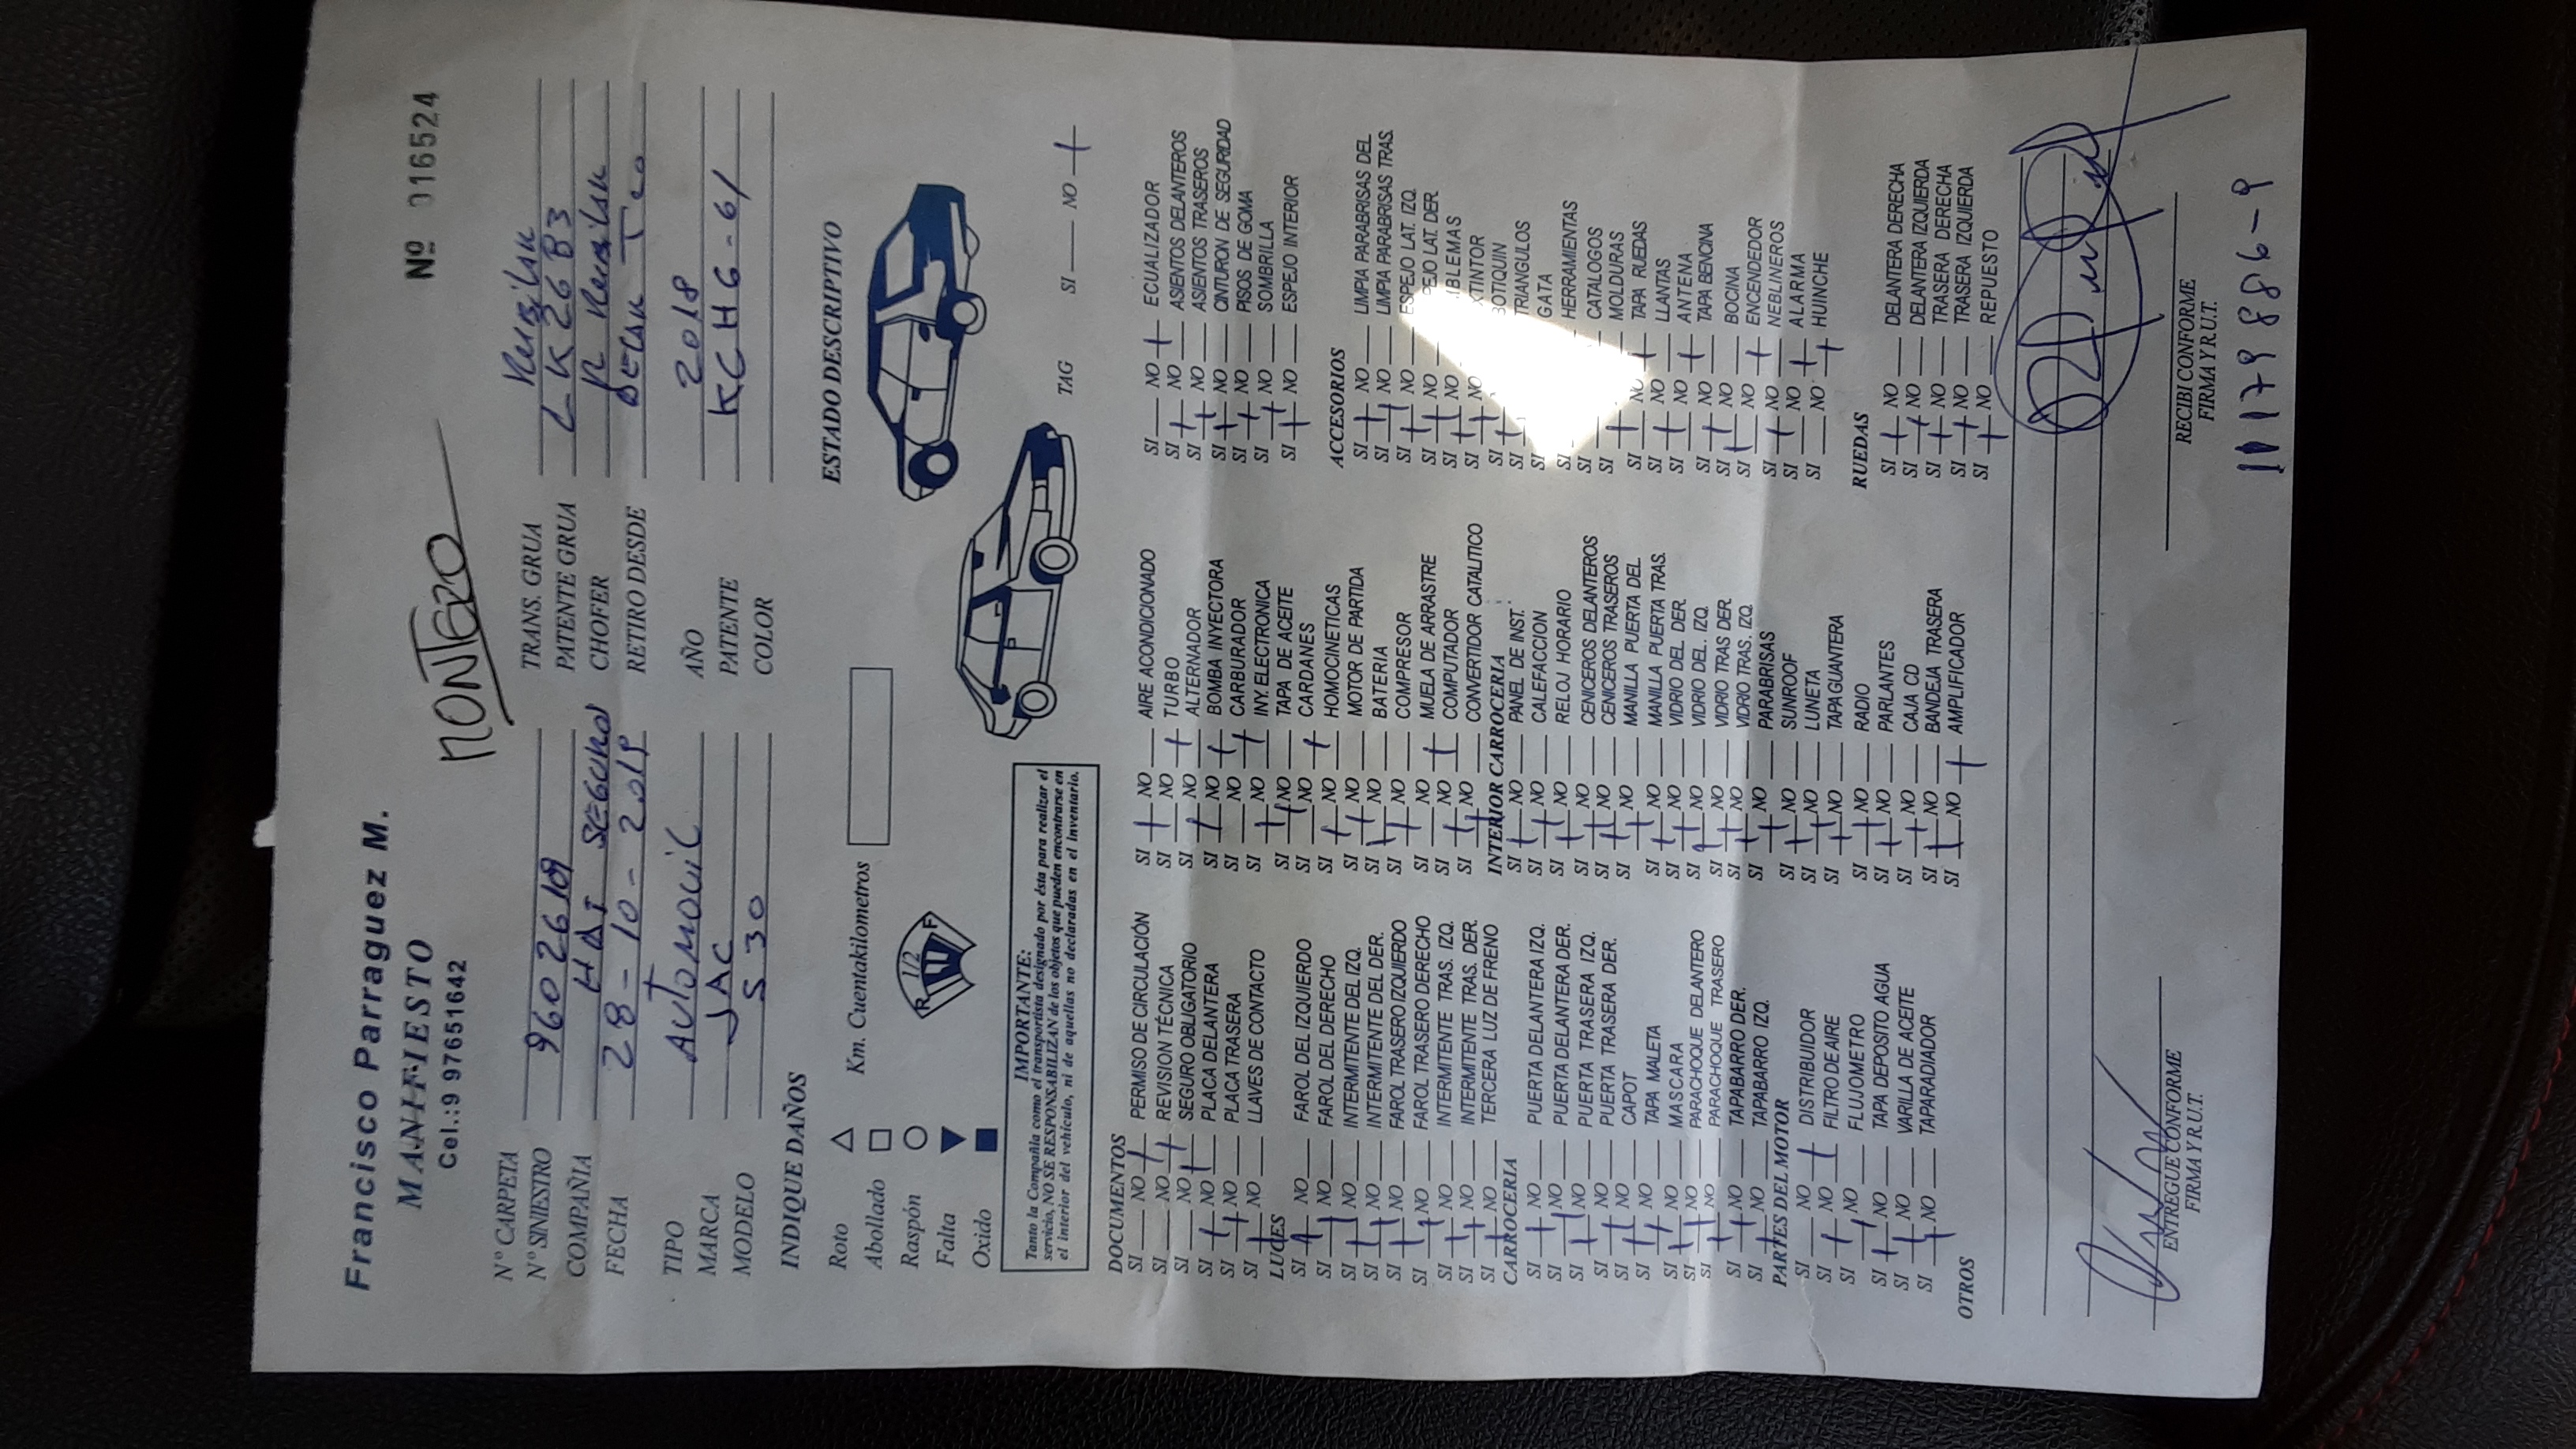 Francisco Parraguez M.
MANIFIESTO
Cel.:9 97651642
MONTERO
Nº 016524
Nº CARPETA
Nº SINIESTRO 9602610 TRANS. GRUA
COMPAÑIA HDI SEGUROS PATENTE GRUA LK26B3
FECHA 28-10-2019 CHOFER
RETIRO DESDE
TIPO AUTOMOVIL
MARCA JAC AÑO 2018
MODELO S 30 PATENTE KCHG-61
COLOR
INDIQUE DAÑOS
Km. Cuentakilometros
ESTADO DESCRIPTIVO
Roto
Abollado
Raspón
Falta
Oxido
R 1/2 F
IMPORTANTE:
Tanto la Compañía como el transportista designado por ésta para realizar el
servicio, NO SE RESPONSABILIZAN de los objetos que pueden encontrarse en
el interior del vehículo, ni de aquellas no declaradas en el inventario.
TAG SI NO
DOCUMENTOS
SI NO PERMISO DE CIRCULACIÓN
SI NO REVISION TÉCNICA
SI NO SEGURO OBLIGATORIO
SI NO PLACA DELANTERA
SI NO PLACA TRASERA
SI NO LLAVES DE CONTACTO
LUCES
SI NO FAROL DEL IZQUIERDO
SI NO FAROL DEL DERECHO
SI NO INTERMITENTE DEL IZQ.
SI NO INTERMITENTE DEL DER.
SI NO FAROL TRASERO IZQUIERDO
SI NO FAROL TRASERO DERECHO
SI NO INTERMITENTE TRAS. IZQ.
SI NO INTERMITENTE TRAS. DER.
SI NO TERCERA LUZ DE FRENO
CARROCERIA
SI NO PUERTA DELANTERA IZQ.
SI NO PUERTA DELANTERA DER.
SI NO PUERTA TRASERA IZQ.
SI NO PUERTA TRASERA DER.
SI NO CAPOT
SI NO TAPA MALETA
SI NO MASCARA
SI NO PARACHOQUE DELANTERO
SI NO PARACHOQUE TRASERO
SI NO TAPABARRO DER.
SI NO TAPABARRO IZQ.
PARTES DEL MOTOR
SI NO DISTRIBUIDOR
SI NO FILTRO DE AIRE
SI NO FLUJOMETRO
SI NO TAPA DEPOSITO AGUA
SI NO VARILLA DE ACEITE
SI NO TAPARADIADOR
SI NO AIRE ACONDICIONADO
SI NO TURBO
SI NO ALTERNADOR
SI NO BOMBA INYECTORA
SI NO CARBURADOR
SI NO INY. ELECTRONICA
SI NO TAPA DE ACEITE
SI NO CARDANES
SI NO HOMOCINETICAS
SI NO MOTOR DE PARTIDA
SI NO BATERIA
SI NO COMPRESOR
SI NO MUELA DE ARRASTRE
SI NO COMPUTADOR
SI NO CONVERTIDOR CATALITICO
INTERIOR CARROCERIA
SI NO PANEL DE INST.
SI NO CALEFACCION
SI NO RELOJ HORARIO
SI NO CENICEROS DELANTEROS
SI NO CENICEROS TRASEROS
SI NO MANILLA PUERTA DEL.
SI NO MANILLA PUERTA TRAS.
SI NO VIDRIO DEL DER.
SI NO VIDRIO DEL. IZQ.
SI NO VIDRIO TRAS DER.
SI NO VIDRIO TRAS. IZQ.
SI NO PARABRISAS
SI NO SUNROOF
SI NO LUNETA
SI NO TAPA GUANTERA
SI NO RADIO
SI NO PARLANTES
SI NO CAJA CD
SI NO BANDEJA TRASERA
SI NO AMPLIFICADOR
SI NO ECUALIZADOR
SI NO ASIENTOS DELANTEROS
SI NO ASIENTOS TRASEROS
SI NO CINTURON DE SEGURIDAD
SI NO PISOS DE GOMA
SI NO SOMBRILLA
SI NO ESPEJO INTERIOR
ACCESORIOS
SI NO LIMPIA PARABRISAS DEL
SI NO LIMPIA PARABRISAS TRAS.
SI NO ESPEJO LAT. IZQ.
SI NO LAT. DER.
SI NO
SI NO
SI BOTIQUIN
SI TRIANGULOS
SI GATA
SI HERRAMIENTAS
SI CATALOGOS
SI MOLDURAS
SI NO TAPA RUEDAS
SI NO LLANTAS
SI NO ANTENA
SI NO TAPA BENCINA
SI NO BOCINA
SI NO ENCENDEDOR
SI NO NEBLINEROS
SI NO ALARMA
SI NO HUINCHE
RUEDAS
SI NO DELANTERA DERECHA
SI NO DELANTERA IZQUIERDA
SI NO TRASERA DERECHA
SI NO TRASERA IZQUIERDA
SI NO REPUESTO
OTROS
ENTREGUE CONFORME
FIRMA Y R.U.T.
RECIBI CONFORME
FIRMA Y R.U.T.
11179886-9